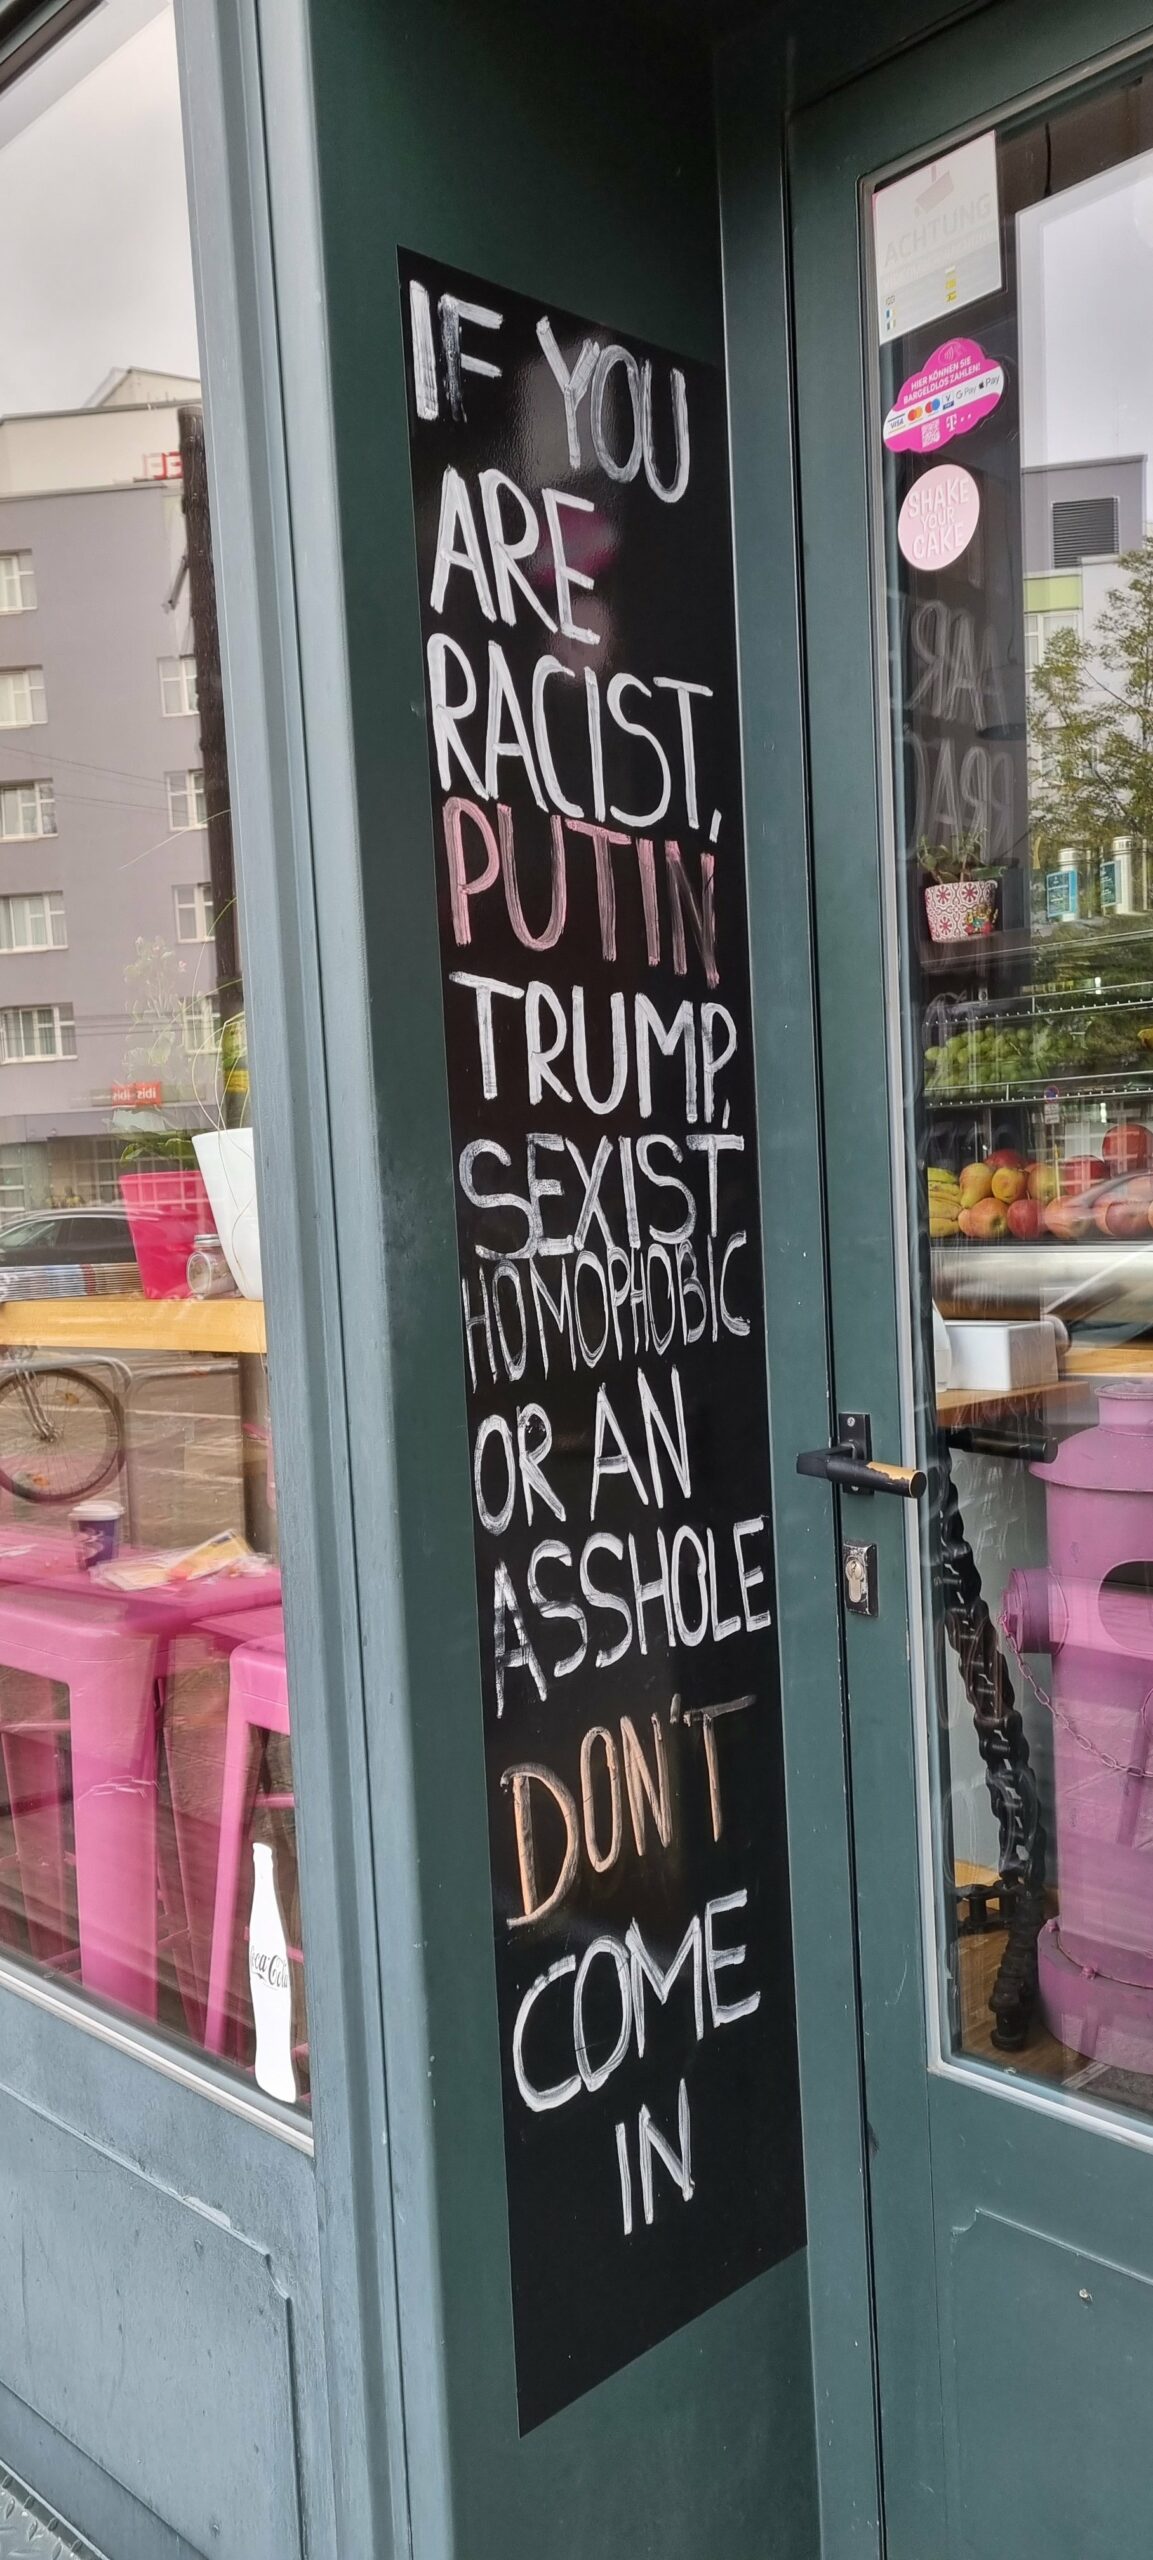 IF YOU
ARE
RACIST,
PUTIN
TRUMP,
SEXIST
HOMOPHOBIC
OR AN
ASSHOLE
DON'T
COME
IN
ACHTUNG
HIER KÖNNEN SIE
BARGELDLOS ZAHLEN!
VISA G Pay Pay
T
SHAKE
YOUR
CAKE
Coca-Cola